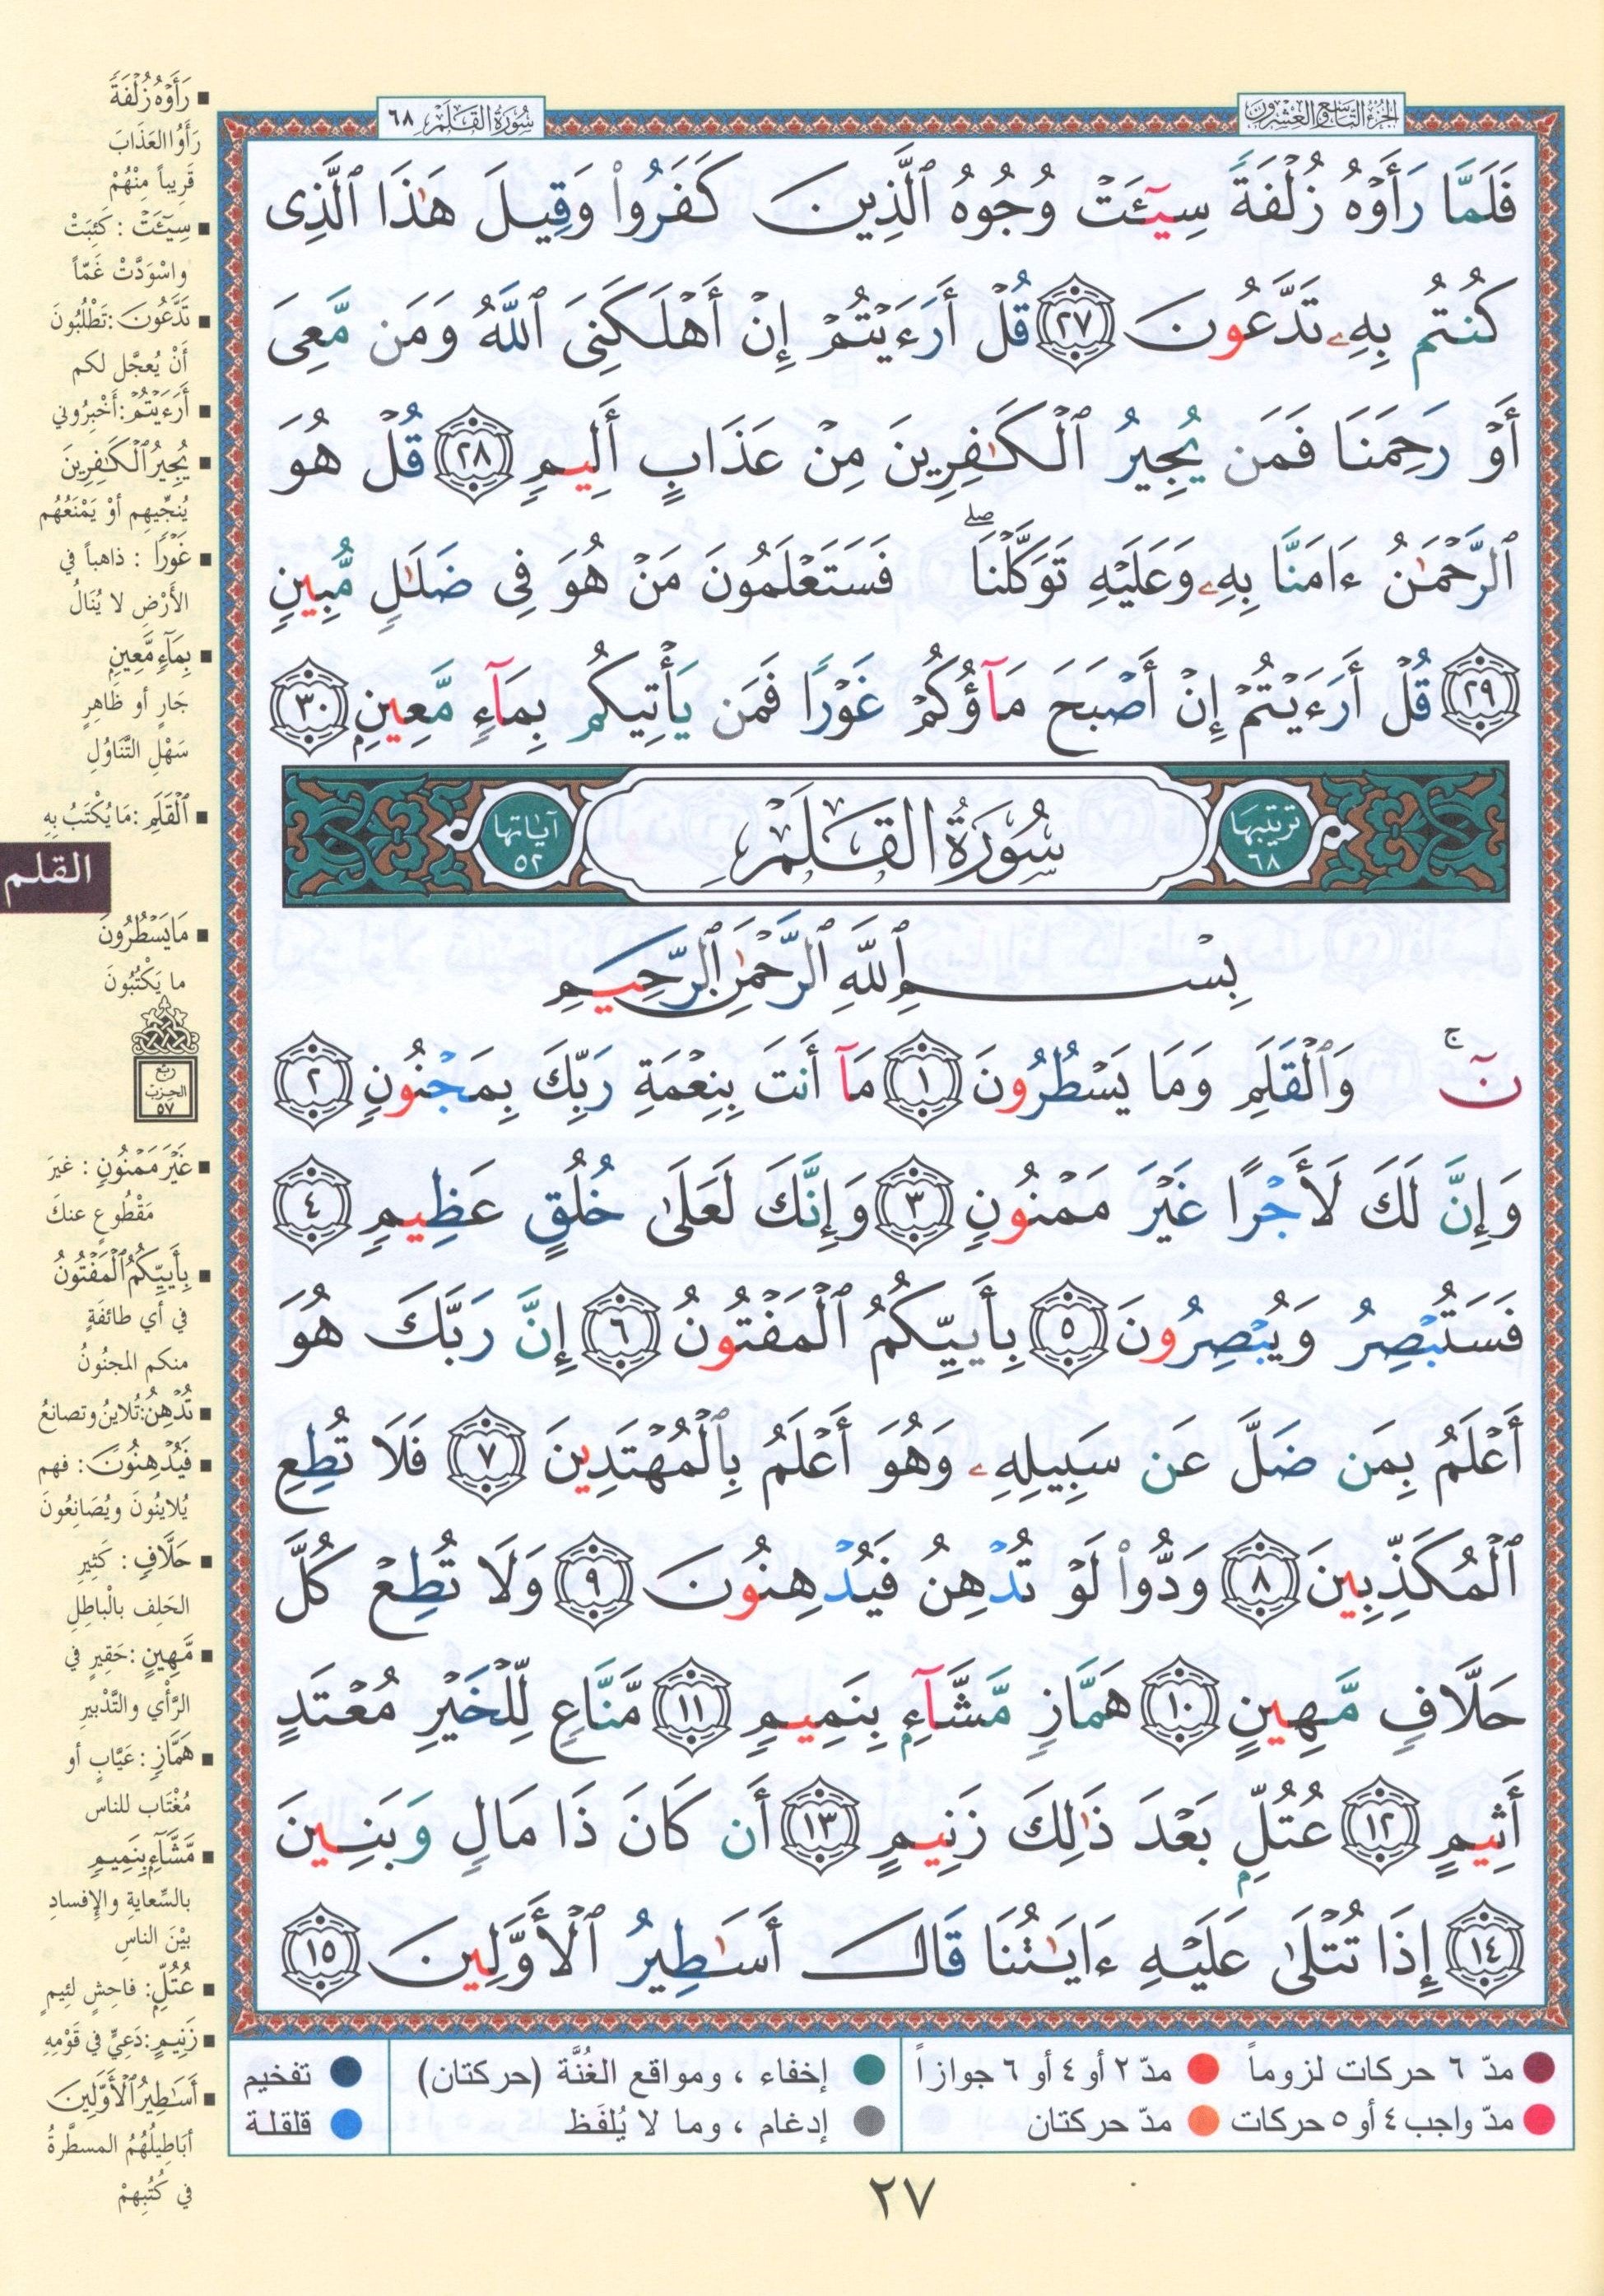 الجزء التاسع والعشرون
سُورَةُ القَلَمِ ٦٨
فَلَمَّا رَأَوْهُ زُلْفَةً سِيٓـَٔتْ وُجُوهُ ٱلَّذِينَ كَفَرُوا۟ وَقِيلَ هَـٰذَا ٱلَّذِى
كُنتُم بِهِۦ تَدَّعُونَ ٢٧ قُلْ أَرَءَيْتُمْ إِنْ أَهْلَكَنِىَ ٱللَّهُ وَمَن مَّعِىَ
أَوْ رَحِمَنَا فَمَن يُجِيرُ ٱلْكَـٰفِرِينَ مِنْ عَذَابٍ أَلِيمٍ ٢٨ قُلْ هُوَ
ٱلرَّحْمَـٰنُ ءَامَنَّا بِهِۦ وَعَلَيْهِ تَوَكَّلْنَا ۖ فَسَتَعْلَمُونَ مَنْ هُوَ فِى ضَلَـٰلٍ مُّبِينٍ
٢٩ قُلْ أَرَءَيْتُمْ إِنْ أَصْبَحَ مَآؤُكُمْ غَوْرًا فَمَن يَأْتِيكُم بِمَآءٍ مَّعِينٍۭ ٣٠
ترتيبها ٦٨ سُورَةُ القَلَمِ آياتها ٥٢
بِسْمِ ٱللَّهِ ٱلرَّحْمَـٰنِ ٱلرَّحِيمِ
نٓ ۚ وَٱلْقَلَمِ وَمَا يَسْطُرُونَ ١ مَآ أَنتَ بِنِعْمَةِ رَبِّكَ بِمَجْنُونٍ ٢
وَإِنَّ لَكَ لَأَجْرًا غَيْرَ مَمْنُونٍ ٣ وَإِنَّكَ لَعَلَىٰ خُلُقٍ عَظِيمٍ ٤
فَسَتُبْصِرُ وَيُبْصِرُونَ ٥ بِأَييِّكُمُ ٱلْمَفْتُونُ ٦ إِنَّ رَبَّكَ هُوَ
أَعْلَمُ بِمَن ضَلَّ عَن سَبِيلِهِۦ وَهُوَ أَعْلَمُ بِٱلْمُهْتَدِينَ ٧ فَلَا تُطِعِ
ٱلْمُكَذِّبِينَ ٨ وَدُّوا۟ لَوْ تُدْهِنُ فَيُدْهِنُونَ ٩ وَلَا تُطِعْ كُلَّ
حَلَّافٍ مَّهِينٍ ١٠ هَمَّازٍ مَّشَّآءٍۭ بِنَمِيمٍ ١١ مَّنَّاعٍ لِّلْخَيْرِ مُعْتَدٍ
أَثِيمٍ ١٢ عُتُلٍّۭ بَعْدَ ذَٰلِكَ زَنِيمٍ ١٣ أَن كَانَ ذَا مَالٍ وَبَنِينَ
١٤ إِذَا تُتْلَىٰ عَلَيْهِ ءَايَـٰتُنَا قَالَ أَسَـٰطِيرُ ٱلْأَوَّلِينَ ١٥
▪ رَأَوْهُ زُلْفَةً
رَأَوُا العَذَابَ
قَرِيباً مِنْهُمْ
▪ سِيٓـَٔتْ : كَئِبَتْ
واسْوَدَّتْ غَمّاً
▪ تَدَّعُونَ : تَطْلُبُونَ
أَنْ يُعجَّل لكم
▪ أَرَءَيْتُمْ : أَخْبِرُوني
▪ يُجِيرُ ٱلْكَـٰفِرِينَ
يُنجِّيهِم أوْ يَمْنَعُهُم
▪ غَوْرًا : ذاهباً في
الأَرْضِ لا يُنَالُ
▪ بِمَآءٍ مَّعِينٍ
جَارٍ أو ظاهِرٍ
سَهْلِ التَّنَاوُلِ
▪ ٱلْقَلَمِ : مَا يُكْتَبُ بِهِ
القلم
▪ مَا يَسْطُرُونَ
ما يَكْتُبُونَ
ربع
الحزب
٥٧
▪ غَيْرَ مَمْنُونٍ : غيرَ
مَقْطُوعٍ عنكَ
▪ بِأَييِّكُمُ ٱلْمَفْتُونُ
في أي طائفَةٍ
منكم المجنُونُ
▪ تُدْهِنُ : تُلاينُ وتصانعُ
▪ فَيُدْهِنُونَ : فهم
يُلاينُونَ ويُصَانِعُونَ
▪ حَلَّافٍ : كَثِيرِ
الحَلِف بالْباطِلِ
▪ مَّهِينٍ : حَقِيرٍ في
الرَّأْي والتَّدْبيرِ
▪ هَمَّازٍ : عَيَّابٍ أو
مُغْتَاب للناس
▪ مَّشَّآءٍ بِنَمِيمٍ
بالسِّعايةِ والإِفسادِ
بيْنَ الناسِ
▪ عُتُلٍّ : فاحِشٍ لئِيمٍ
▪ زَنِيمٍ : دَعِيٍّ في قَوْمِهِ
▪ أَسَـٰطِيرُ ٱلْأَوَّلِينَ
أَبَاطِيلُهُمُ المسطَّرةُ
في كُتُبِهِمْ
مدّ ٦ حركات لزوماً مدّ ٢ أو ٤ أو ٦ جوازاً إخفاء ، ومواقع الغُنَّة (حركتان) تفخيم
مدّ واجب ٤ أو ٥ حركات مدّ حركتان إدغام ، وما لا يُلفَظ قلقلة
٢٧